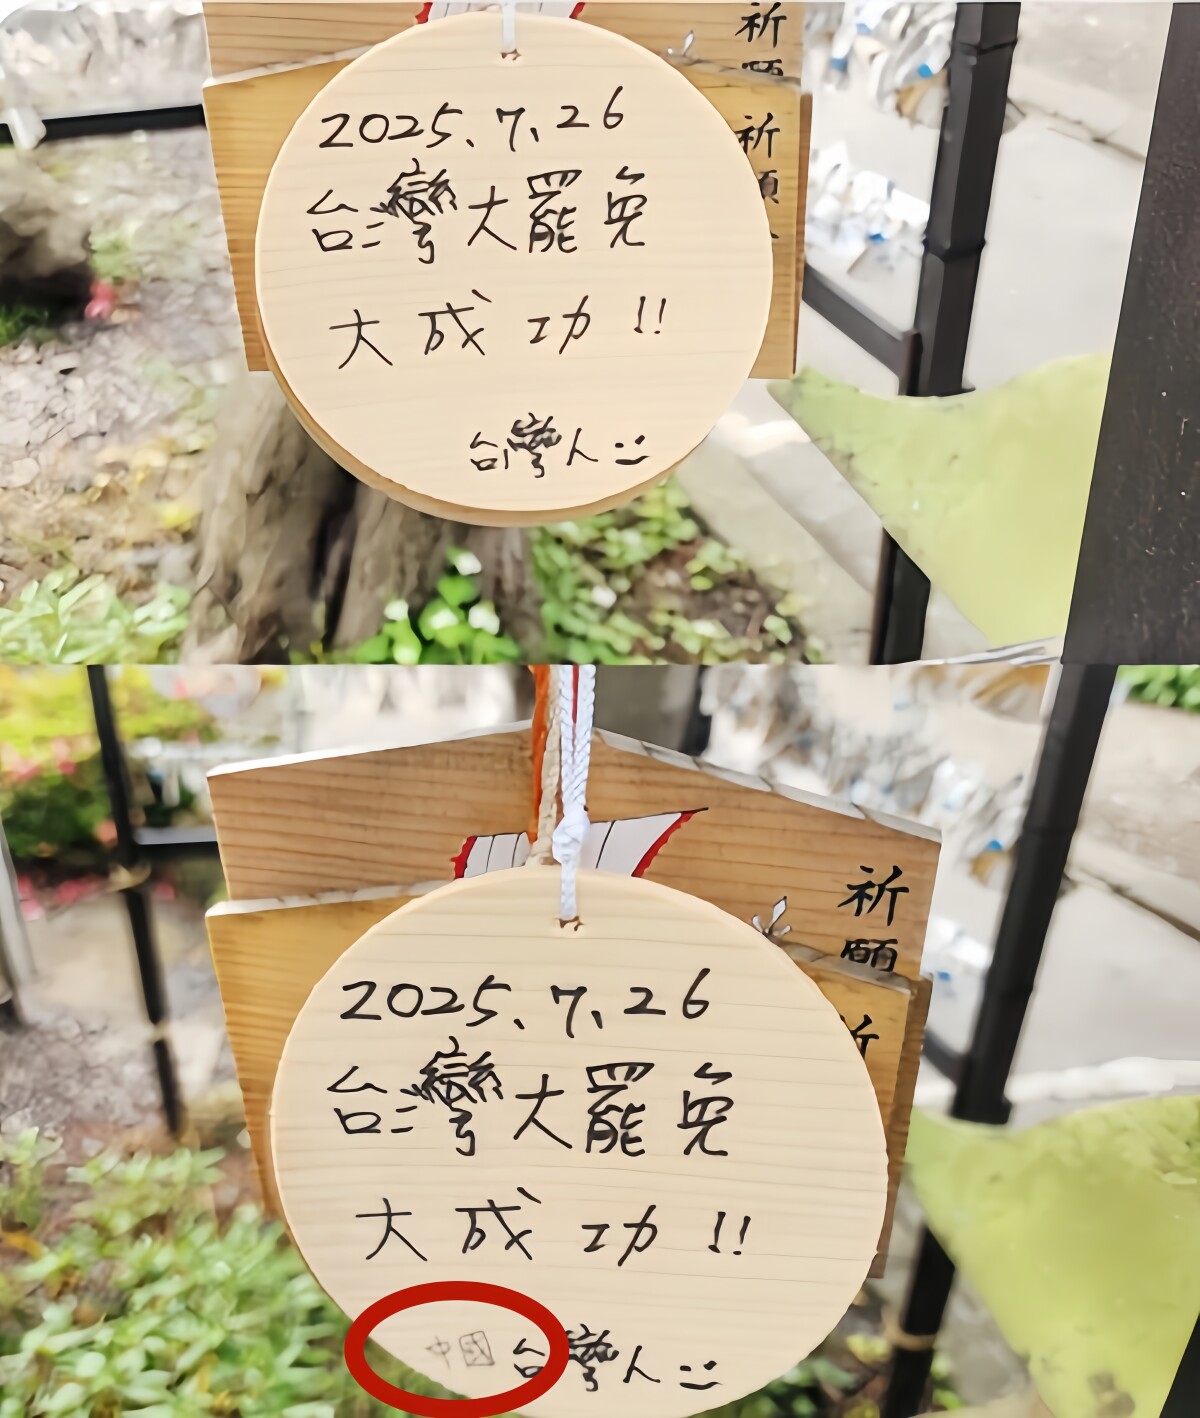 祈願
祈願
2025.7.26
台灣大罷免
大成功!!
台灣人
祈願
祈
2025.7.26
台灣大罷免
大成功!!
中國 台灣人